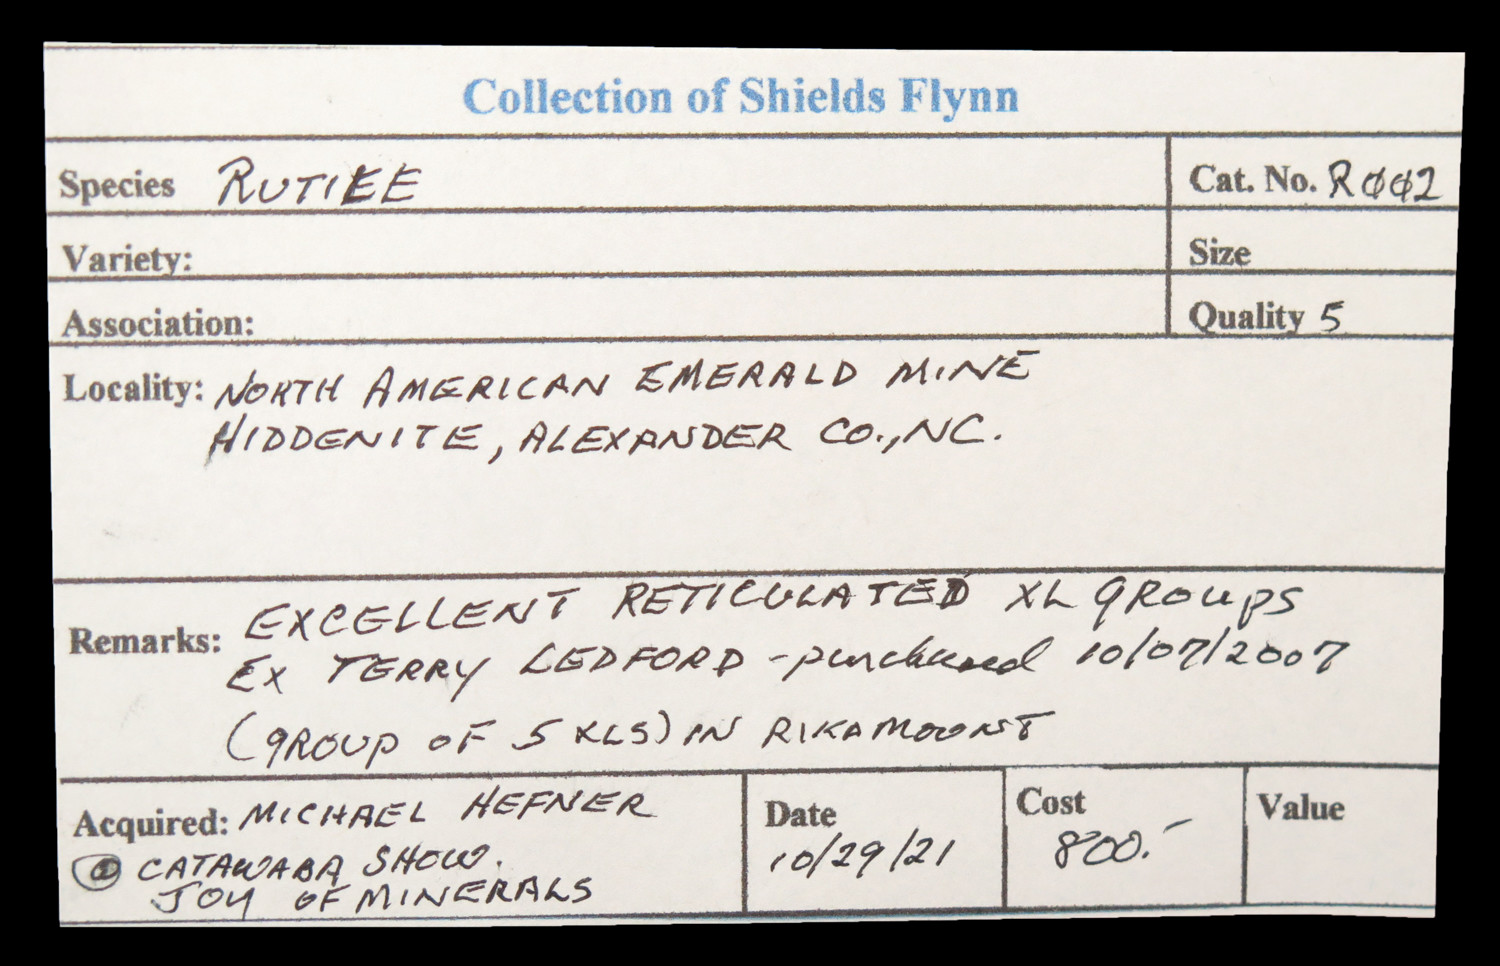 Collection of Shields Flynn
Species RUTILE
Cat. No. RØØ2
Variety:
Size
Association:
Quality 5
Locality: NORTH AMERICAN EMERALD MINE
HIDDENITE, ALEXANDER CO., NC.
Remarks: EXCELLENT RETICULATED XL GROUPS
EX TERRY LEDFORD - purchased 10/07/2007
(GROUP OF 5 XLS) IN RIKAMOUNT
Acquired: MICHAEL HEFNER
@ CATAWABA SHOW.
JOY OF MINERALS
Date
10/29/21
Cost
800.-
Value